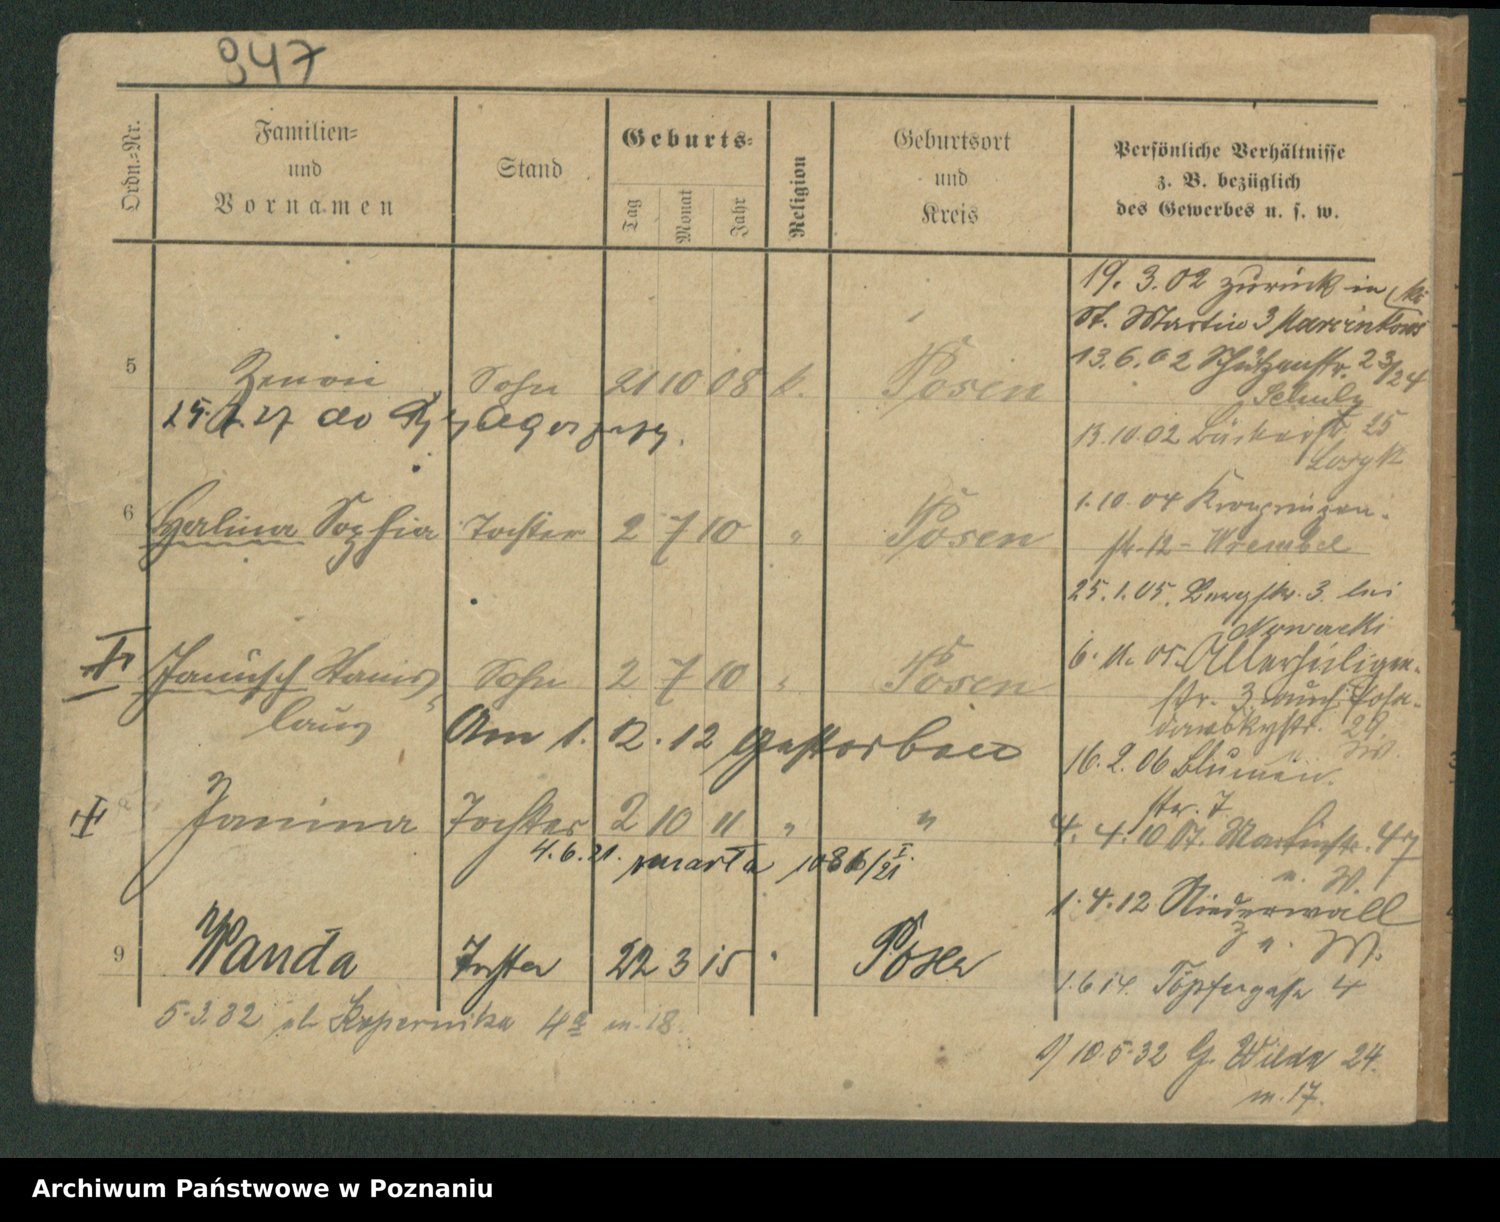 947
Ordn.=Nr.
Familien=
und
Vornamen
Stand
Geburts=
Tag
Monat
Jahr
Religion
Geburtsort
und
Kreis
Persönliche Verhältnisse
z. B. bezüglich
des Gewerbes u. s. w.
5 Zenon Sohn 21 10 08 k. Posen
25. 27 do
6 Halina Sophia Tochter 2 7 10 " Posen
Janusch Stanis- Sohn 2 7 10 " Posen
laus
Am 1. 12. 12 gestorben
Janina Tochter 2 10 11 " "
4.6.21. zmarła 1086/21 I.
9 Wanda Tochter 22 3 15 " Posen
5.3.32 ul. Kopernika 4a m. 18.
19. 3. 02 zurück in
St. Martin 3 Marcinkows
13.6.02 Schützenstr. 23/24
Schulz
13.10.02 Bäckerstr. 25
1.10.04 Kronprinzen-
str. 12 - Wrembel
25.1.05. Bergstr. 3. bei
Nowacki
6. 11. 05. Allerheiligen-
str. 3 auch Posa-
dowskystr. 29.
16.2.06 Blumen
str. 7
4. 4. 10 St. Martinstr. 47
u. W.
1.4.12 Niederwall
3 u. W.
1.6.14. Töpfergasse 4
10.5.32 G. Wilda 24.
m. 17.
Archiwum Państwowe w Poznaniu